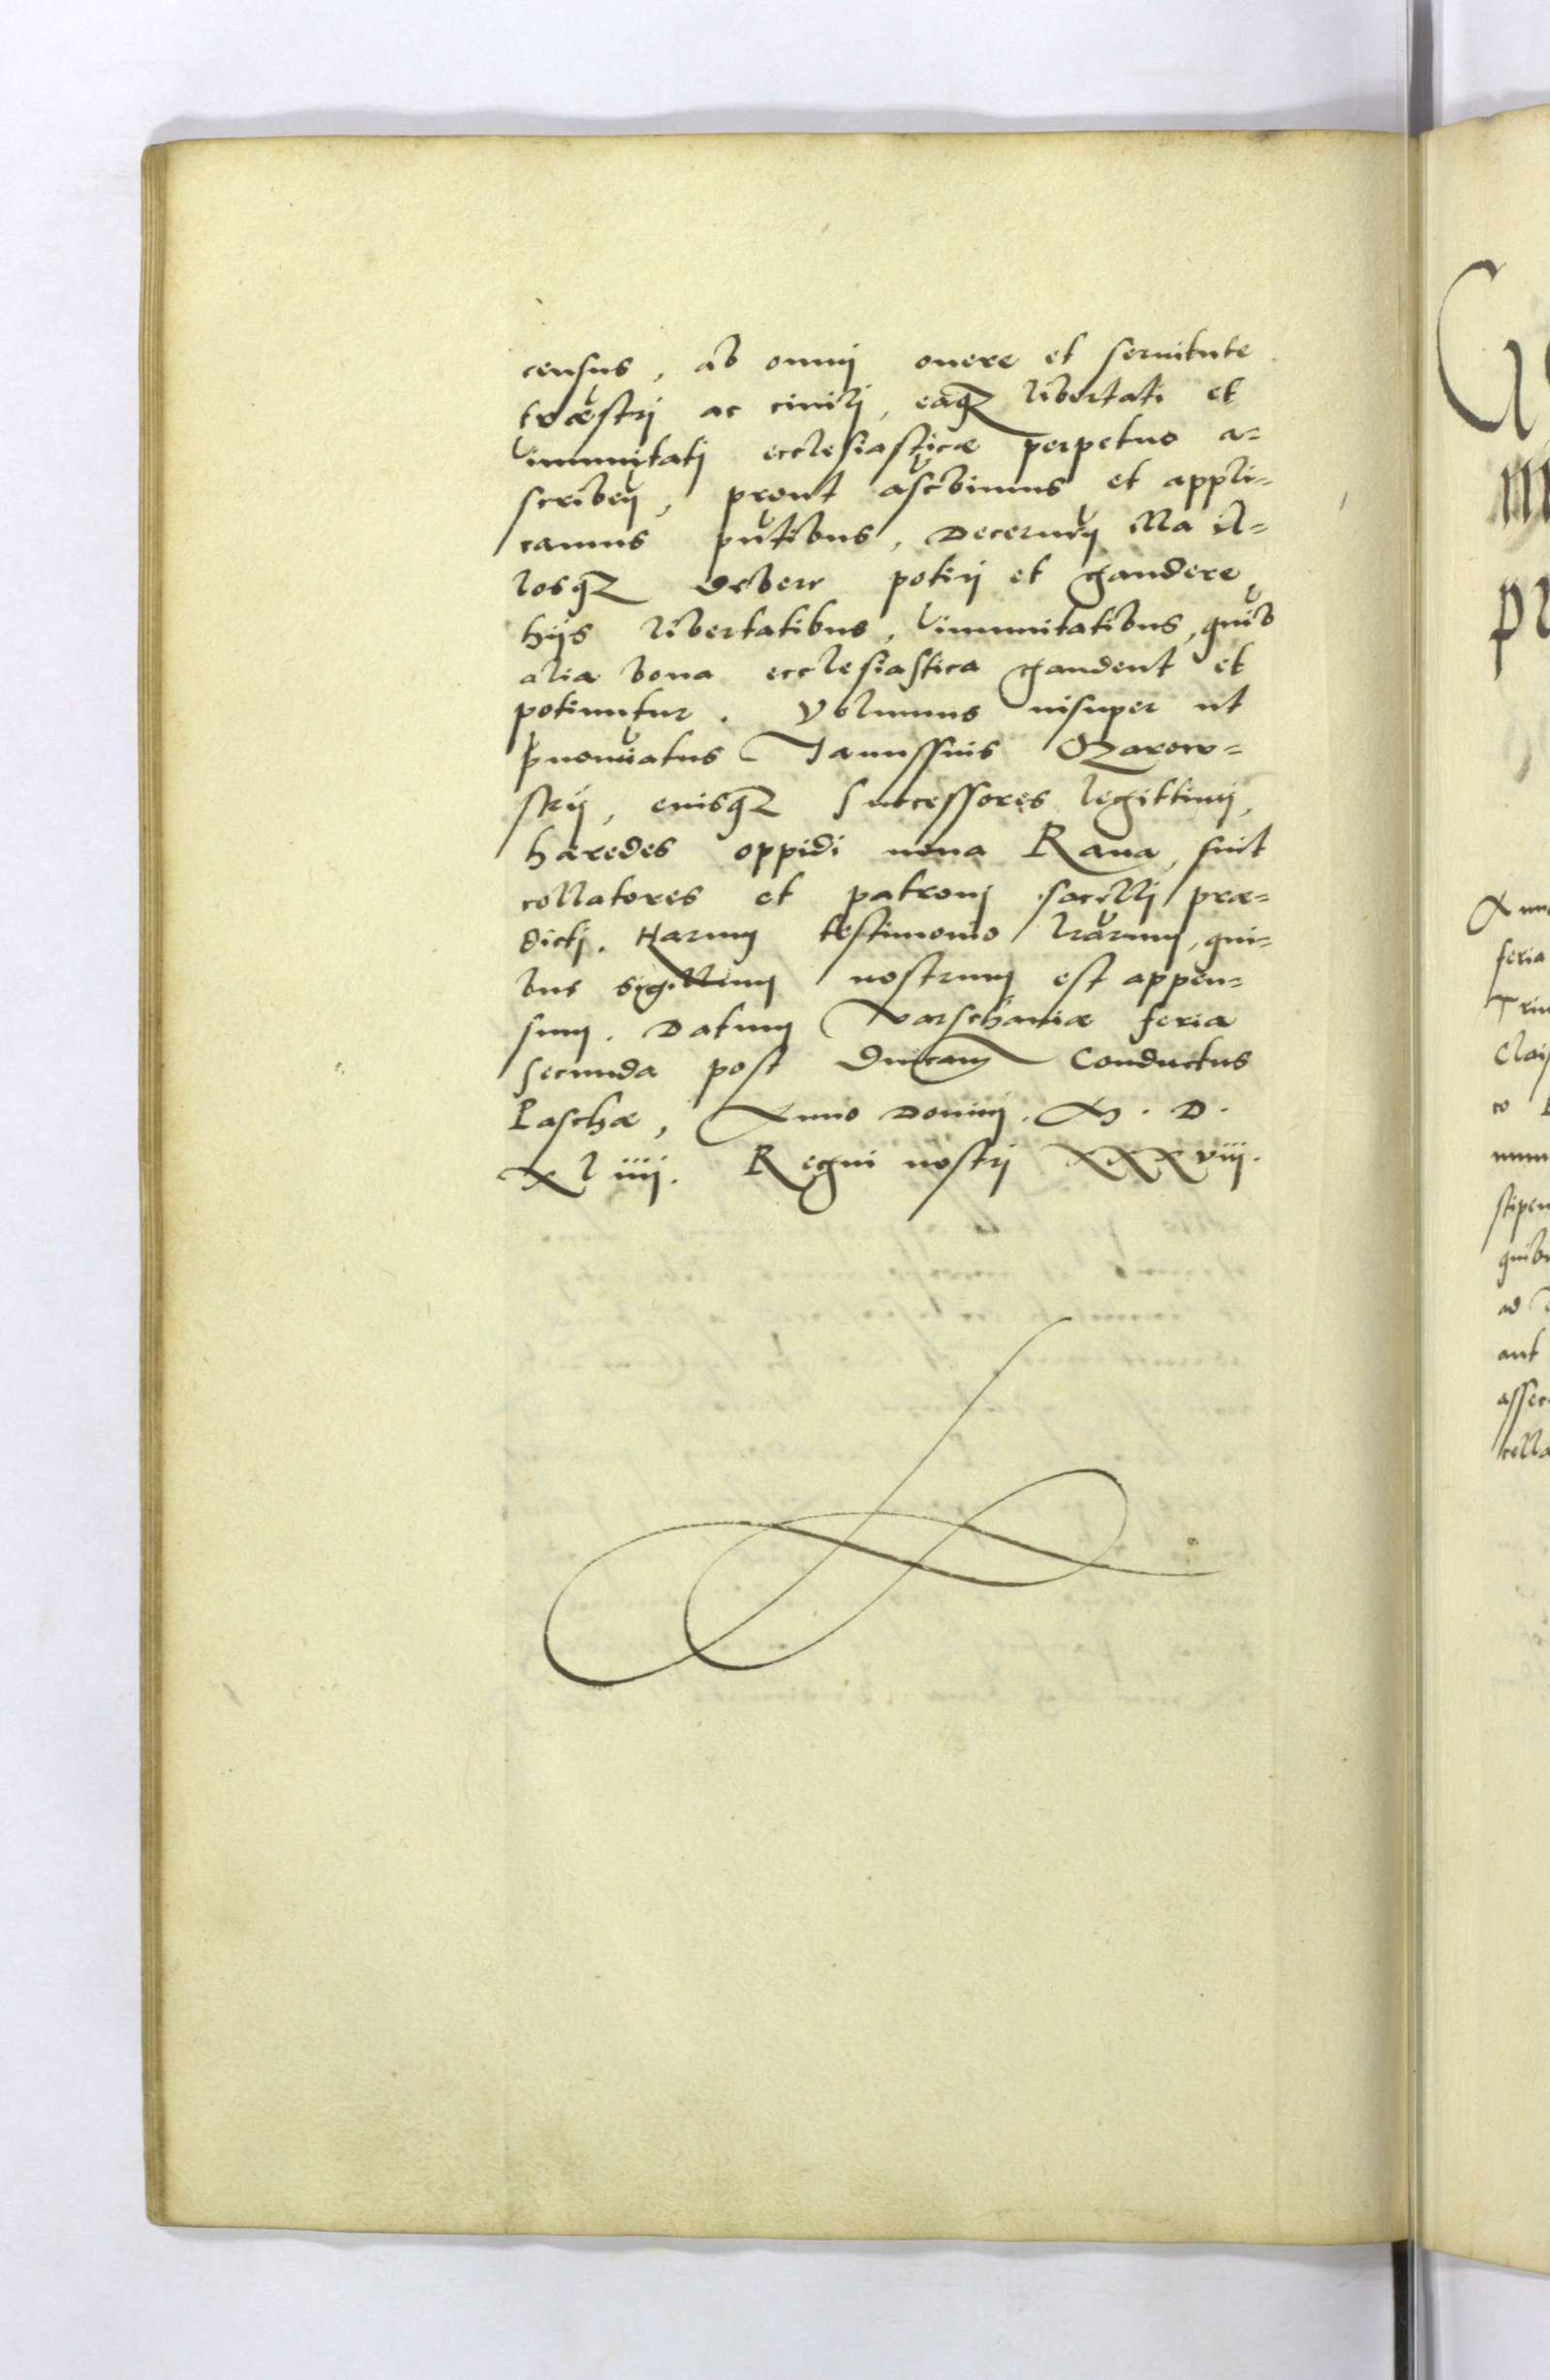 census, ab omnij onere et seruitute
træstrj ac ciuilj, eaqꝫ libertati et
immunitatj ecclesiasticæ perpetuo a=
scribeŋ, prout ascbimus et appli=
camus pňtibus, Decernẽŋ illa il=
losqꝫ debere potirj et gaudere
hijs libertatibus, immunitatibus, quib
alia bona ecclesiastica gaudent et
potiuntur. Volumus insuper ut
pnomiatus Janussius
eiusqꝫ successores legittimj,
hæredes oppidi noua Raua, sint
collatores et patronj sacellj præ=
dictj. Harum testimonio lrarum, qui=
bus sigillum nostrum est appen=
sum. Datum Varschauiæ feria
secunda post Dnicam Conductus
Paschæ, Anno Dominj. M. D.
XLiiij. Regni nostrj XXXviij.
Anno
feria
Clais
co
num
stipen
quib
ad
aut
asser